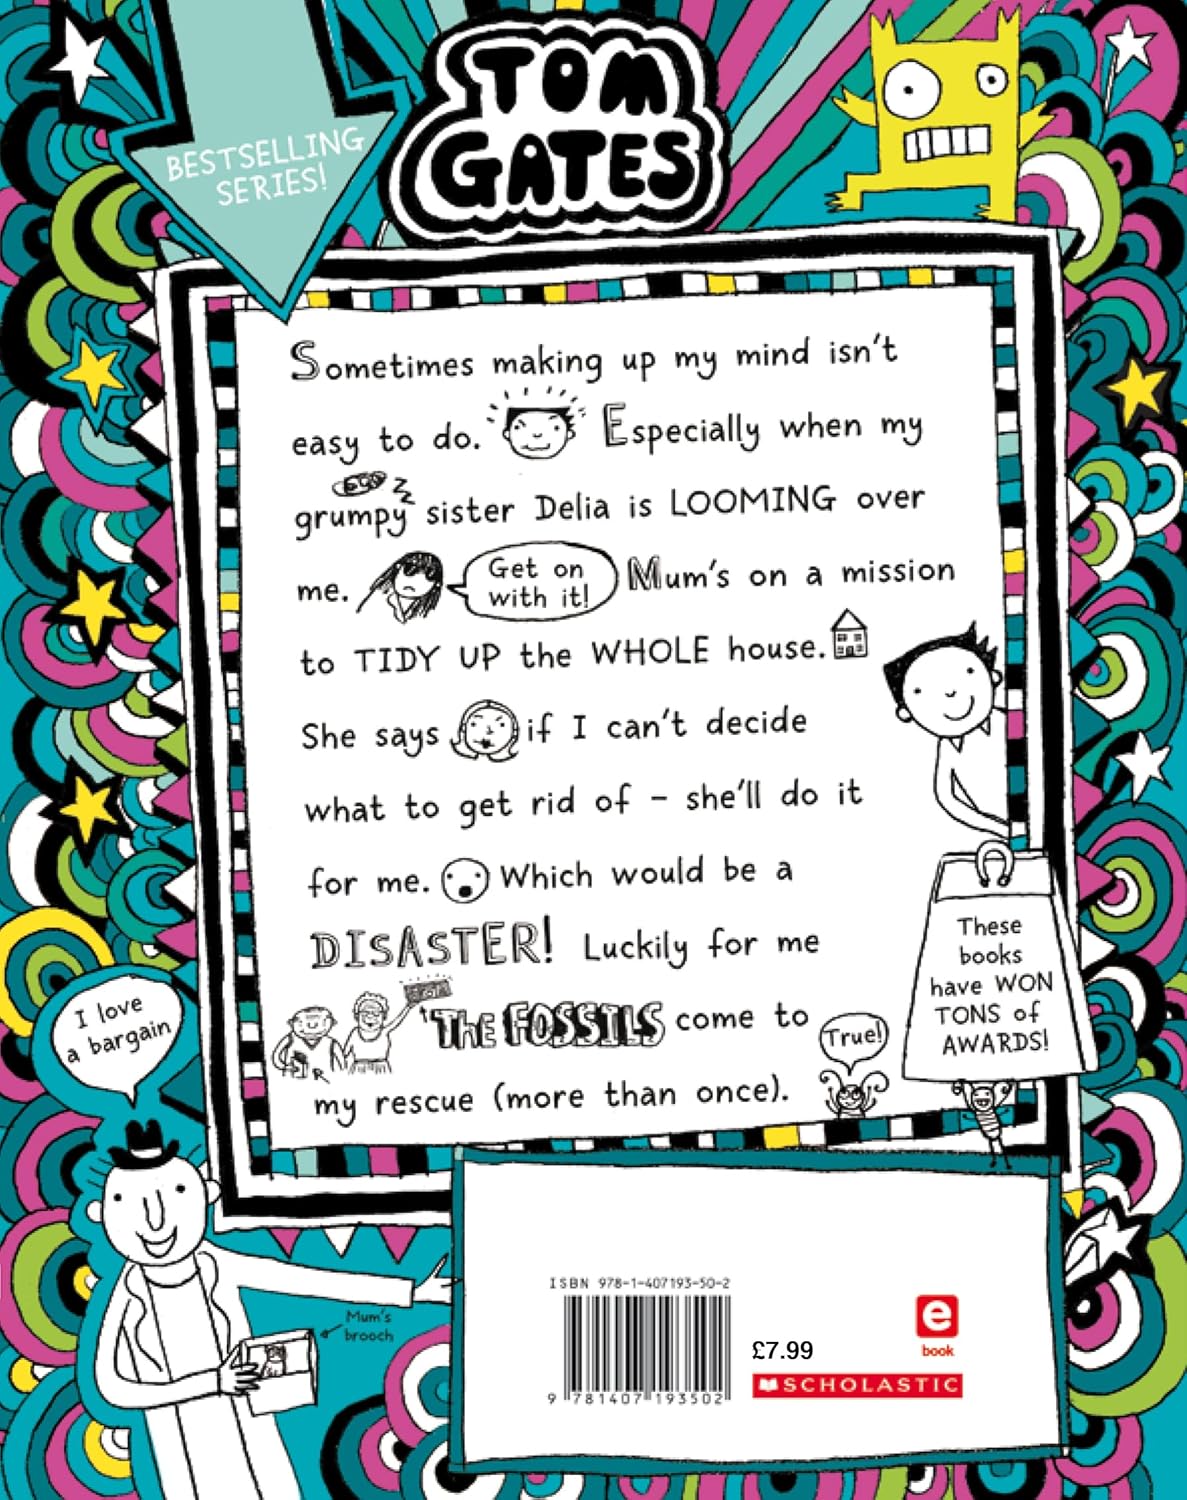 TOM
GATES
BESTSELLING
SERIES!
Sometimes making up my mind isn't
easy to do. Especially when my
grumpy sister Delia is LOOMING over
me. Get on
with it! Mum's on a mission
to TIDY UP the WHOLE house.
She says if I can't decide
what to get rid of – she'll do it
for me. Which would be a
DISASTER! Luckily for me
THE FOSSILS come to
my rescue (more than once).
True!
These
books
have WON
TONS of
AWARDS!
I love
a bargain
Mum's
brooch
ISBN 978-1-407193-50-2
9 781407 193502
£7.99
e
book
SCHOLASTIC